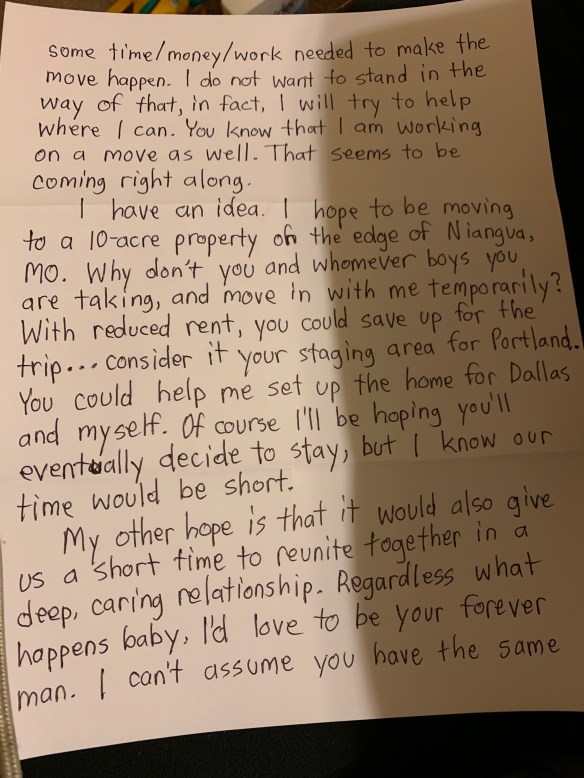 some time/money/work needed to make the
move happen. I do not want to stand in the
way of that, in fact, I will try to help
where I can. You know that I am working
on a move as well. That seems to be
coming right along.
I have an idea. I hope to be moving
to a 10-acre property on the edge of Niangua,
MO. Why don't you and whomever boys you
are taking, and move in with me temporarily?
With reduced rent, you could save up for the
trip... consider it your staging area for Portland.
You could help me set up the home for Dallas
and myself. Of course I'll be hoping you'll
eventually decide to stay, but I know our
time would be short.
My other hope is that it would also give
us a short time to reunite together in a
deep, caring relationship. Regardless what
happens baby, I'd love to be your forever
man. I can't assume you have the same